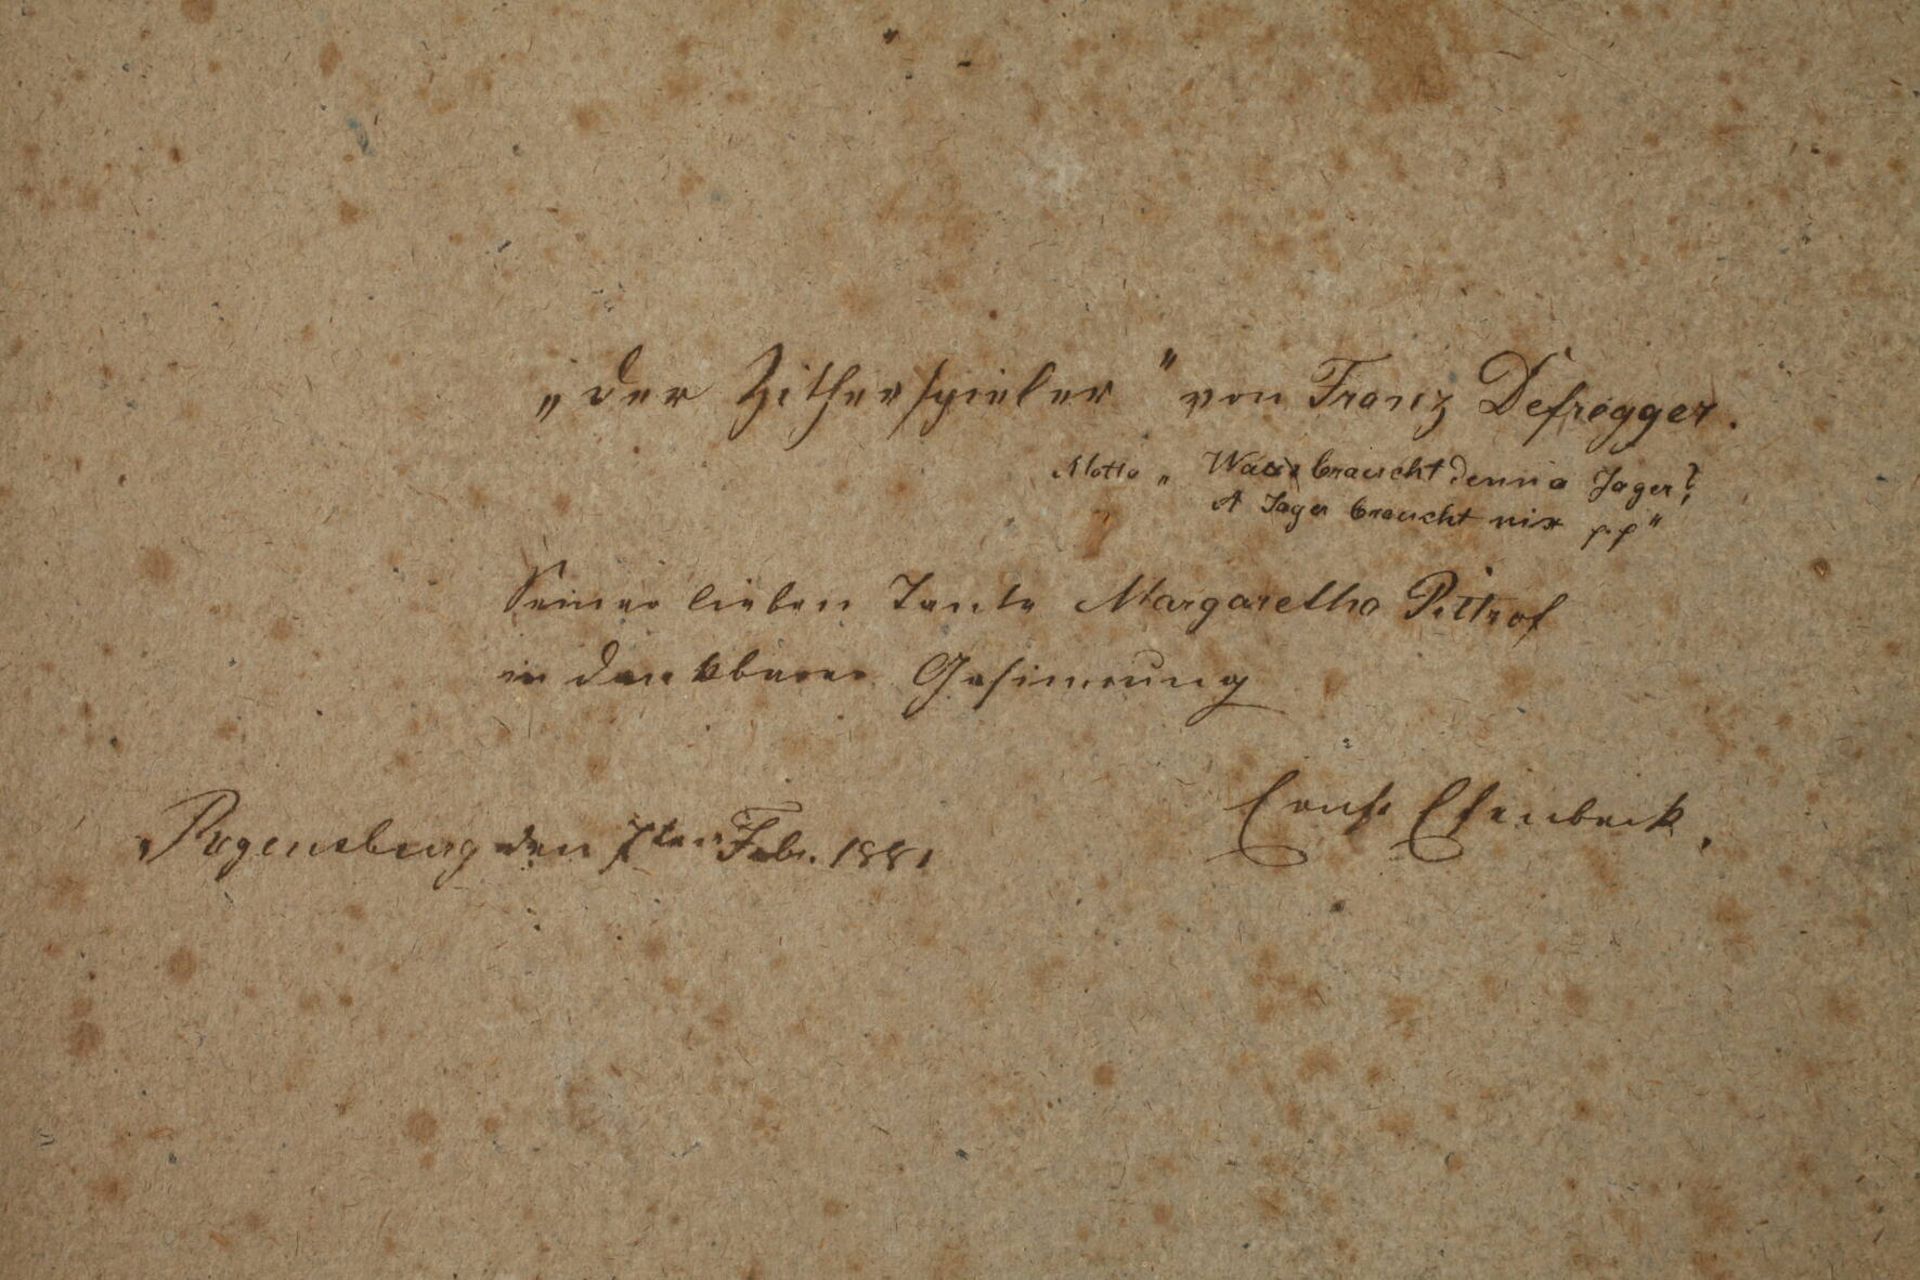 „Der Zitherspieler" von Franz Defregger.
Motto „ Was braucht denn a Jager?
A Jager braucht nix p.p"
Seiner lieben Tante Margaretha Pittrof
in dankbarer Gesinnung
Ernst Esenbeck.
Regensburg den 7ten Feb. 1881